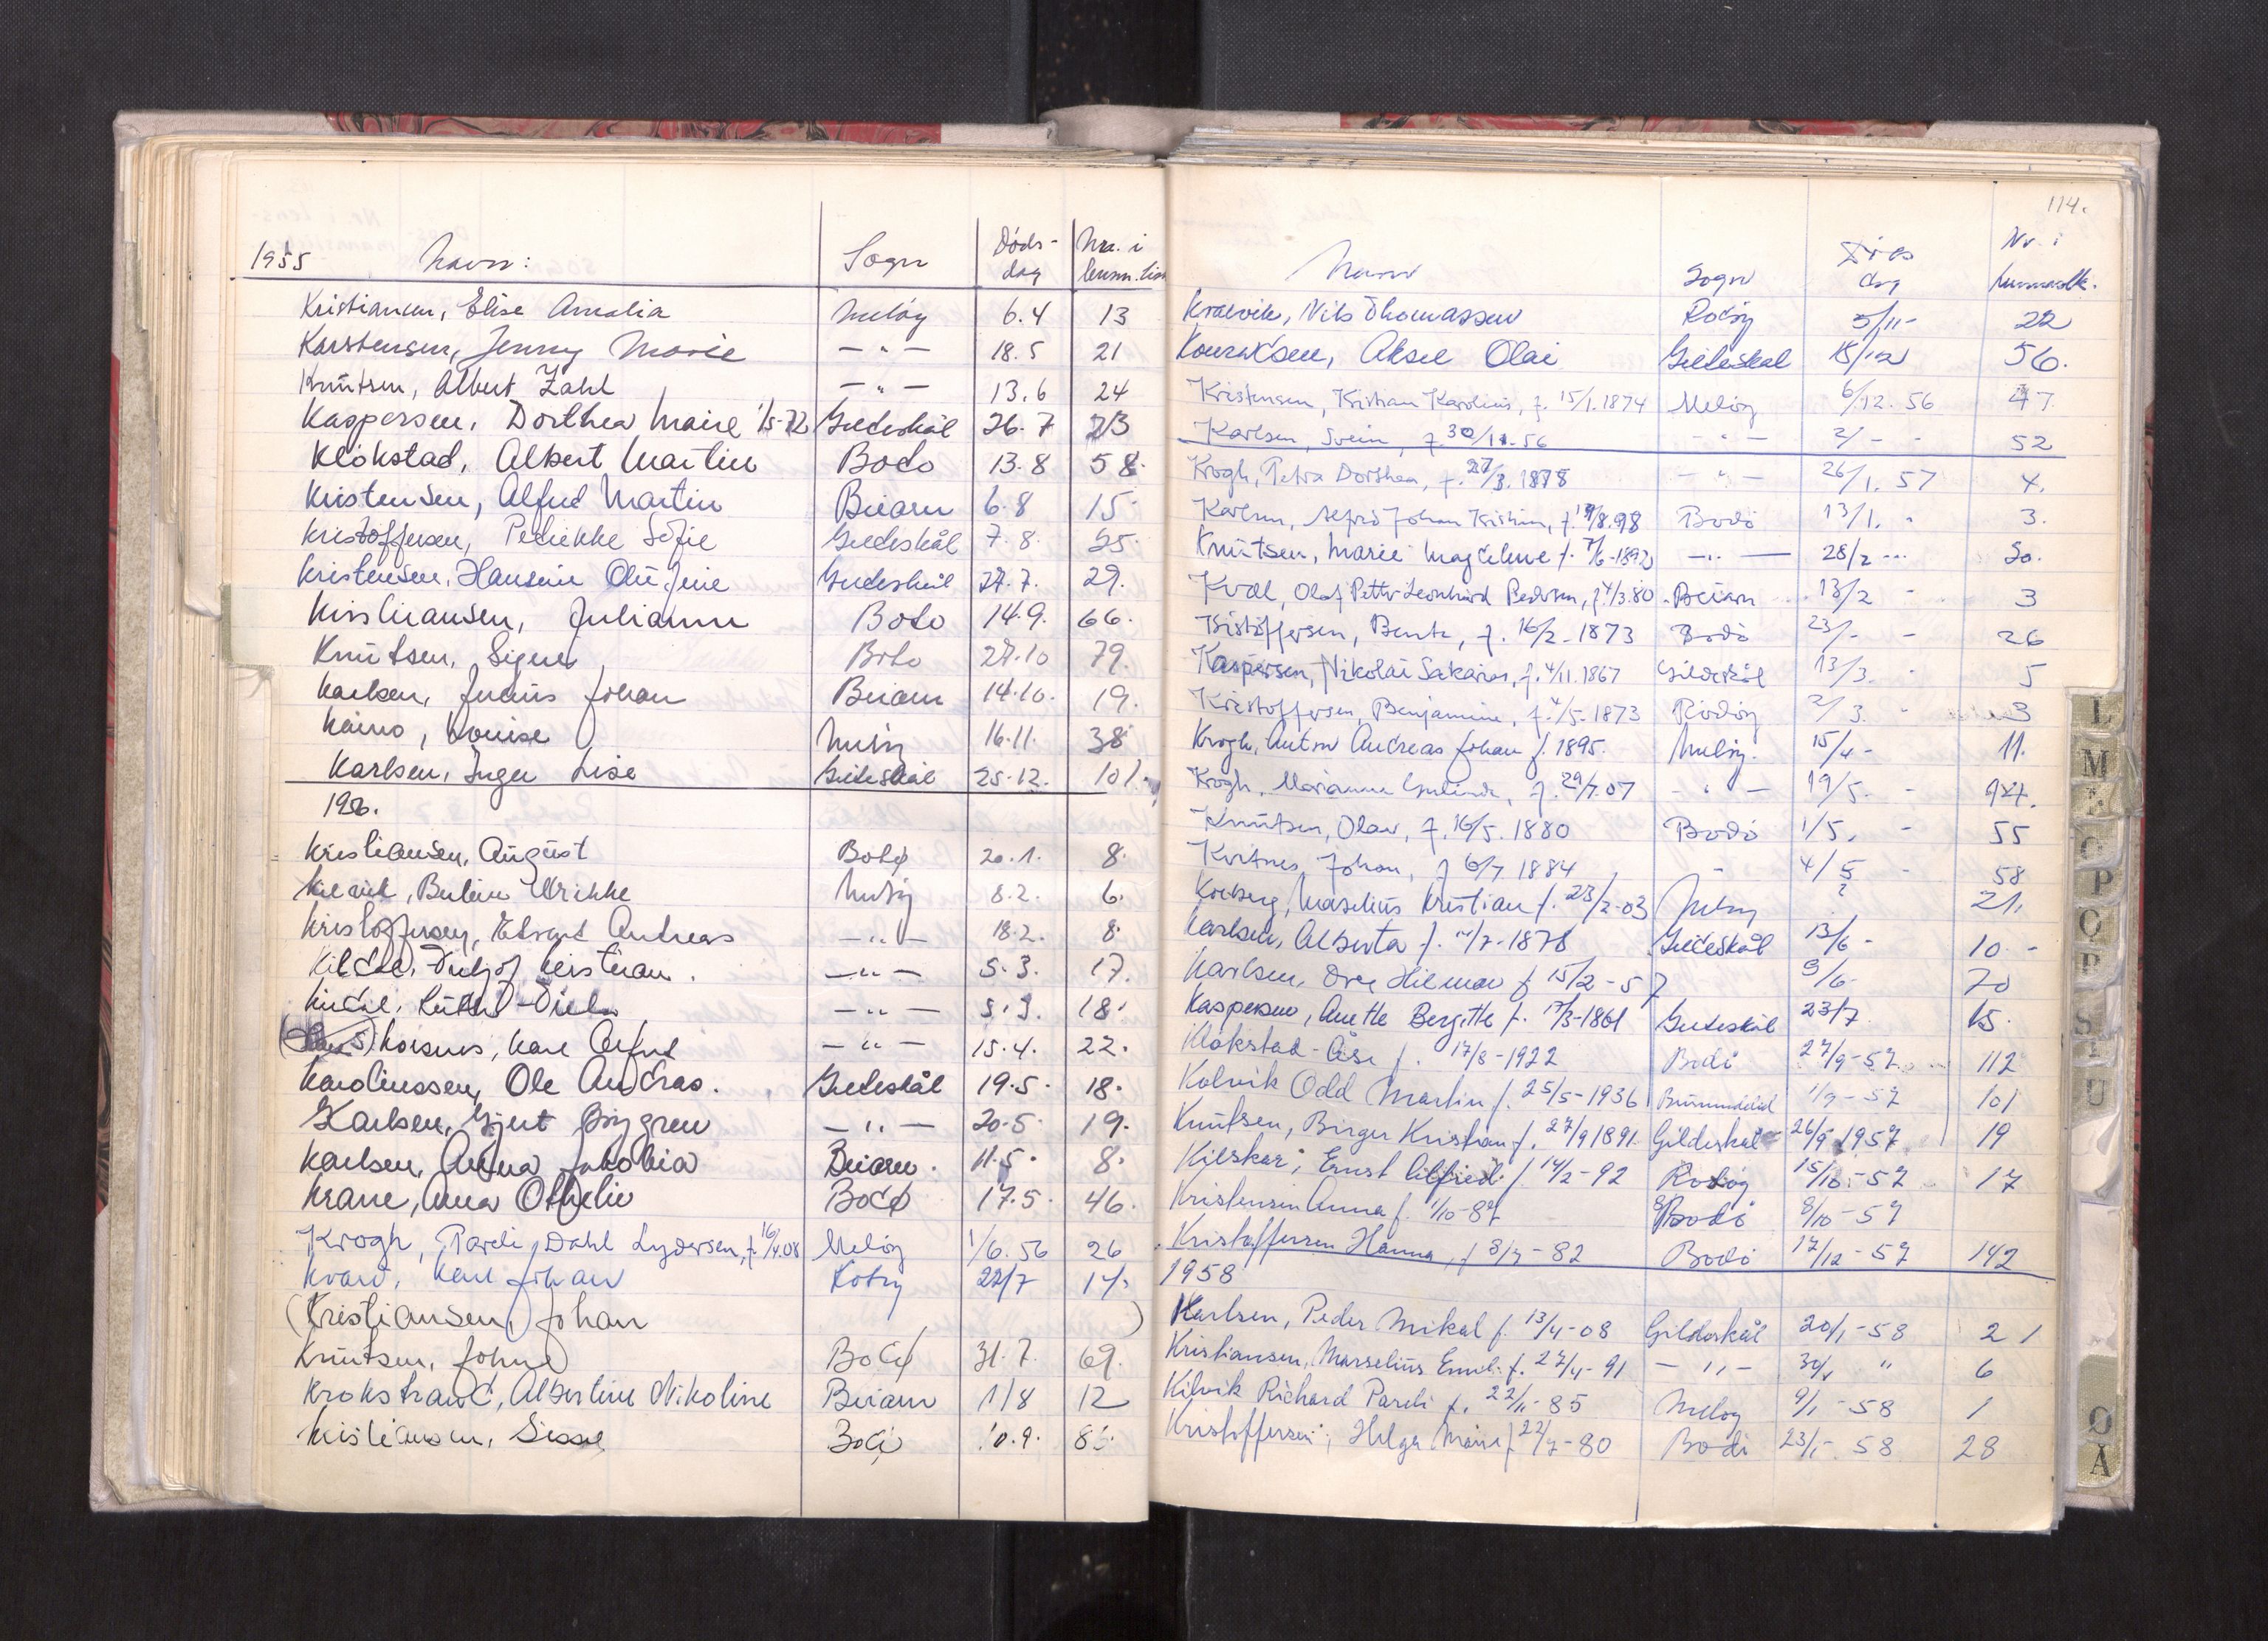 1955 Navn: Sogn Døds-dag Nr. i lensm. list
Kristiansen, Elise Amalia Meløy 6.4 13
Karstensen, Jenny Marie — " — 18.5 21
Knutsen, Albert Zahl — " — 13.6 24
Kaspersen, Dorthea Marie Gildeskål 26.7 23
Klokstad, Albert Martin Bodø 13.8 58
Kristensen, Alfred Martin Beiarn 6.8 15
Kristoffersen, Pedrikke Sofie Gildeskål 7.8. 25
Kristensen, Hansine Oluf­ine Gildeskål 27.7. 29.
Kristiansen, Julianne Bodø 14.9. 66.
Knutsen, Signe Bodø 27.10 79.
Karlsen, Julius Johan Beiarn 14.10. 19.
Louise Meløy 16.11. 38
Karlsen, Inger Lise Gildeskål 25.12. 101.
1956.
Kristiansen, August Bodø 20.1. 8.
Meløy 8.2. 6.
Kristoffersen, Edvard Andreas — " — 18.2. 8
Kildal, Kristian. — " — 5.3. 17.
— " — 18.
Karl — " — 15.4. 22.
Karolinussen, Ole Andreas. Gildeskål 19.5. 18.
Karlsen, Gjert Byggren — " — 20.5. 19.
Karlsen, Anna Jakobia Beiarn. 11.5. 8.
Krane, Anna Othelie Bodø 17.5. 46.
Krogh, Pareli Dahl Lydersen, f. 16/4.08 Meløy 1/6.56 26
Kvant, Karl Johan Rødøy 22/7 14.
(Kristiansen, Johan )
Knutsen, Johne Bodø 31.7. 69.
Krokstrand, Albertine Nikoline Beiarn 1/8 12
Kristiansen, Bodø 10.9.
114.
Navn Sogn Døds dag Nr. i lensmansdk.
Kræevik, Nils Thomassen Rødøy 5/11- 22
Konradsen, Aksel Olai Gildeskål 15/12 56.
Kristensen, Kristian Karolius, f. 15/1.1874 Meløy 6/12.56 47.
Karlsen, Svein, f. 30/11.56 - " - 2/ - - 52
Krogh, Petra Dorthea, f. 27/3.1878 — " — 26/1.57 4.
Karlsen, Alfred Johan Kristian, f. 19/8.98 Bodø 13/1. " 3.
Knutsen, Marie Magdelene f. 7/6-1892 — " — 28/2 30.
Kvæl, Olaf Petter Leonhard Pedersen, f. 4/3.80 Beiarn 13/2 - 3
Kristoffersen, Bente, f. 16/2-1873 Bodø 23/- - 26
Kaspersen, Nikolai Sakarias, f. 4/11.1867 Gildeskål 13/3. " 5
Kristoffersen, Benjamine, f. 4/5-1873 Rødøy 2/3. " 3
Krogh, Anton Andreas Johan f. 1895. Meløy. 15/4- 11.
Krogh, Marianne f. 29/7.07 - " - 19/5. -
Knutsen, Olav, f. 16/5.1880 Bodø 1/5. - 55
Kvitnes, Johan, f 6/7 1884 - 4/5 - 58
Marselius Kristian f. 23/2-03 Meløy ? 21.
Karlsen, Alberta f. 1878 Gildeskål 13/6 - 10. -
Karlsen, Hilmar f 15/2-57 9/6- 70
Kaspersen, Anette Bergitte f. 17/3-1861 Gildeskål 23/7. 15.
Klokstad - Åse f. 17/8-1922 Bodø 27/9-57 112
Kolvik Odd Martin f. 25/5-1936 1/9-57 101
Knutsen, Birger Kristian f. 27/9 1891 Gildeskål 26/9 1957 19
Kilskar, Ernst Alfred f 14/2-92 Rødøy 15/10-57 17
Kristensen Anna f. 1/10-87 Bodø 8/10-57
Kristoffersen Hanna, f 8/7-82 Bodø 17/12-57 142
1958
Karlsen, Peder Mikal f. 13/4-08 Gildeskål 20/1-58 2 1
Kristiansen, Marselius Emil f. 27/4-91 — " — 30/1 " 6
Kilvik Richard Pareli f. 22/11-85 Meløy 9/1-58 1
Kristoffersen, Helga Marie f 22/7-80 Bodø 23/1-58 28
L
M
O
P
S
U
O
Å